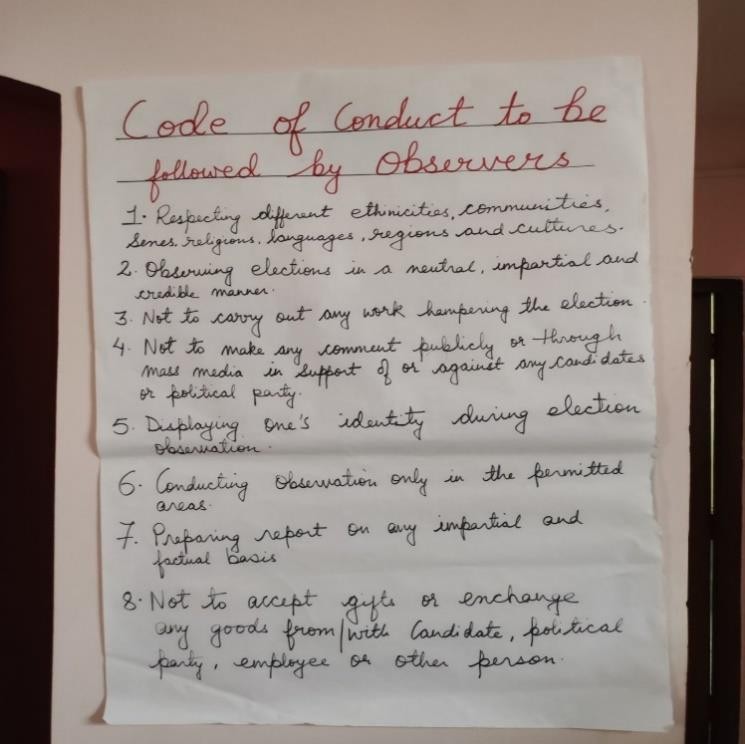 Code of Conduct to be
followed by Observers
1. Respecting different ethinicities, communities,
Sexes, religious, languages, regions and cultures.
2. Observing elections in a neutral, impartial and
credible manner.
3. Not to carry out any work hampering the election.
4. Not to make any comment publicly or through
mass media in support of or against any candidates
or political party.
5. Displaying one's identity during election
observation.
6. Conducting Observation only in the permitted
areas.
7. Preparing report on any impartial and
factual basis
8. Not to accept gifts or exchange
any goods from/with Candidate, political
party, employee or other person.